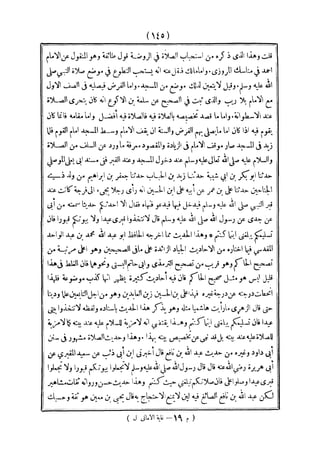 (١٤٥)
قلت وهذا الذى ذكره من استحباب الصلاة فى الروضة قول طائفة وهو المنقول عن الامام
احمد فى مناسك المروزى، واما مالك فنقل عنه انه يستحب التطوع فى موضع صلاة النبى صلى
الله عليه وسلم، وقيل لا يتعين لذلك موضع من المسجد، واما الفرض فيصليه فى الصف الاول
مع الامام بلا ريب والذى ثبت فى الصحيح عن سلمة بن الاكوع انه كان يتحرى الصلاة
عند الاسطوانة، واما ما قصد تخصيصه بالصلاة فيه فالصلاة فيه أفضل واما مقامه فانما كان
يقوم فيه اذا كان اماما يصلى بهم الفرض والسنة ان يقف الامام وسط المسجد امام القوم فلما
زيد فى المسجد صار موقف الامام فى الزيادة والمقصود معرفة ما ورد عن السلف من الصلاة
والسلام عليه صلى الله تعالى عليه وسلم عند دخول المسجد وعند القبر ففى مسند ابى يعلى الموصلى
حدثنا ابو بكر بن ابى شيبة حدثنا زيد بن الحباب حدثنا جعفر بن ابراهيم من ولد ذى
الجناحين حدثنا على بن عمر عن أبيه على بن الحسين انه رأى رجلا يجىء الى فرجة كانت عند
قبر النبى صلى الله عليه وسلم فيدخل فيها فيدعو فنهاه فقال الا احدثكم حديثا سمعته من أبى
عن جدى عن رسول الله صلى الله عليه وسلم قال لا تتخذوا قبرى عيدا ولا بيوتكم قبورا فان
تسليمكم يبلغنى اينما كنتم * وهذا الحديث مما اخرجه الحافظ ابو عبد الله محمد بن عبد الواحد
المقدسى فيما اختاره من الاحاديث الجياد الزائدة على مافى الصحيحين وهو اعلى مرتبة من
تصحيح الحاكم وهو قريب من تصحيح الترمذى وابى حاتم البستى ونحوهما فان الغلط فى هذا
قليل ليس هو مثل صحيح الحاكم فان فيه أحاديث كثيرة يظهر انها كذب موضوعة فلهذا
انحطت درجته عن درجة غيره فهذا على بن الحسين زين العابدين وهو من اجل التابعين علما ودينا
حتى قال الزهرى ما رأيت هاشميا مثله وهو يذكر هذا الحديث باسناده ولفظه لا تتخذوا بيتى
عيدا فان تسليمكم يبلغنى اينما كنتم وهذا يقتضى انه لا مزية للسلام عليه عند بيته كما لا مزية
للصلاة عليه عند بيته بل قد نهى عن تخصيص بيته بهذا، وهذا وحديث الصلاة مشهور فى سنن
أبى داود وغيره من حديث عبد الله بن نافع قال أخبرنى ابن أبى ذئب عن سعيد المقبرى عن
أبى هريرة رضى الله عنه قال قال رسول الله صلى الله عليه وسلم لا تجعلوا بيوتكم قبورا ولا تجعلوا
قبرى عيدا وصلوا على فان صلاتكم تبلغنى حيث كنتم وهذا حديث حسن ورواته ثقات مشاهير
لكن عبد الله بن نافع الصائغ فيه لين لا يمنع الاحتجاج به قال يحيى بن معين هو ثقة وحسبك
( م ١٩ — غاية الامانى ل )